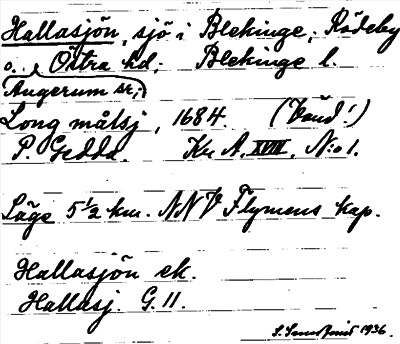 Hallasjön, sjö i Blekinge, Rödeby
o. Östra hd, Blekinge l.
Augerum sn,
Long målsj, 1684. (Vånd!)
P. Gedda. Kr A. XVIII. N:o 1.
Läge 5 1/2 km. NNV Flymens kap.
Hallasjön ek.
Hallasj. G. 11.
1936.